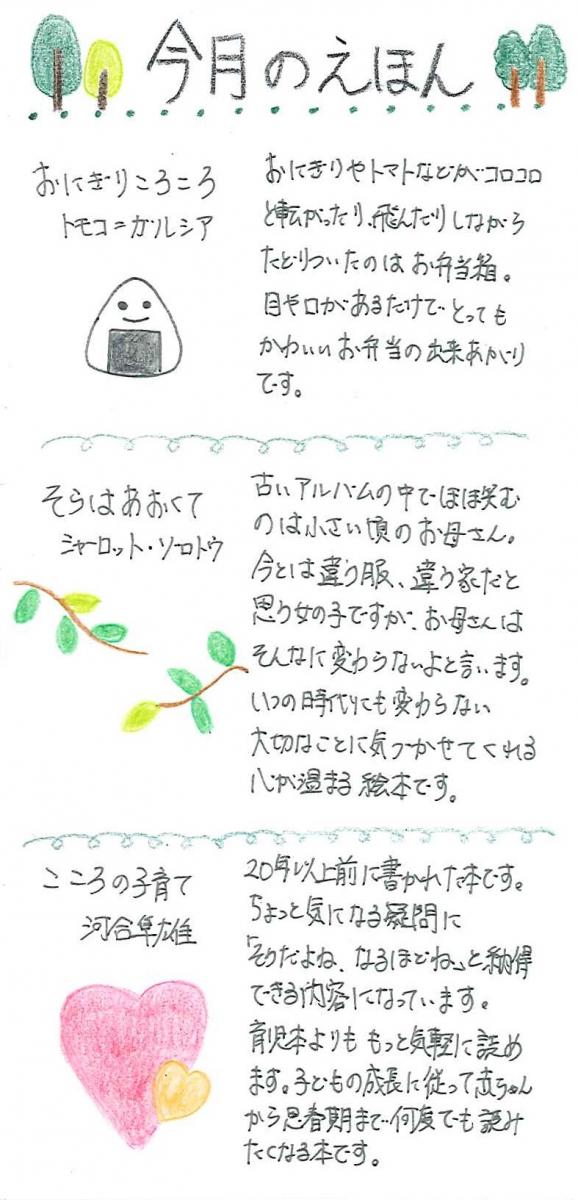 今月のえほん
おにぎりころころ
トモコ=ガルシア
おにぎりやトマトなどがコロコロ
と転がったり、飛んだりしながら
たどりついたのはお弁当箱。
目や口があるだけで とっても
かわいいお弁当の出来あがり
です。
そらはあおくて
シャーロット・ゾロトウ
古いアルバムの中でほほ笑む
のは小さい頃のお母さん。
今とは違う服、違う家だと
思う女の子ですが、お母さんは
そんなに変わらないよと言います。
いつの時代にも変わらない
大切なことに気づかせてくれる
心が温まる絵本です。
こころの子育て
河合隼雄
20年以上前に書かれた本です。
ちょっと気になる疑問に
「そうだよね、なるほどね」と納得
できる内容になっています。
育児本よりも もっと気軽に読め
ます。子どもの成長に従って赤ちゃん
から思春期まで何度でも読み
たくなる本です。